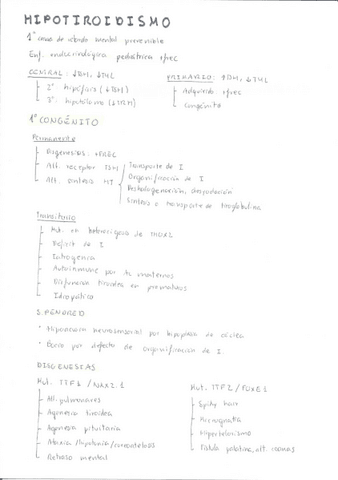 HIPOTIROIDISMO
1ª causa de retardo mental prevenible
Enf. endocrinológica pediátrica +frec
CENTRAL: ↓TSH, ↓T4L
2º hipófisis (↓TSH)
3º: hipotálamo (↓TRH)
PRIMARIO: ↑TSH, ↓T4L
Adquirido +frec
Congénito
1º CONGÉNITO
Permanente
Disgenesias. +FREC
Alt. receptor TSH
Alt. síntesis HT
Transporte de I
Organificación de I
Deshalogenación, degradación
Síntesis o transporte de tiroglobulina
Transitorio
Mut. en heterocigosis de THOX2
Déficit de I
Iatrogenia
Autoinmune por Ac maternos
Disfunción tiroidea en prematuros
Idiopático
S. PENDRED
Hipoacusia neurosensorial por hipoplasia de cóclea
Bocio por defecto de organificación de I.
DISGENESIAS
Mut. TTF1 / NKX2.1
Alt. pulmonares
Agenesia tiroidea
Agenesia pituitaria
Ataxia / hipotonía / coreoatetosis
Retraso mental
Mut. TTF2 / FOXE1
Spiky hair
Micrognatia
Hipertelorismo
Fístula palatina, alt. coanas